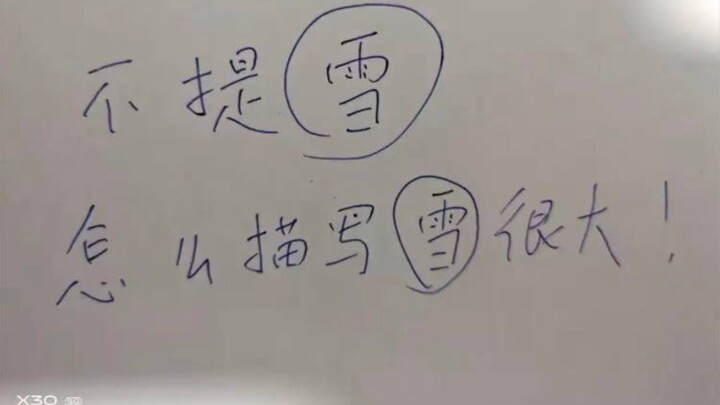 不提雪
怎么描写雪很大！
X30 5G